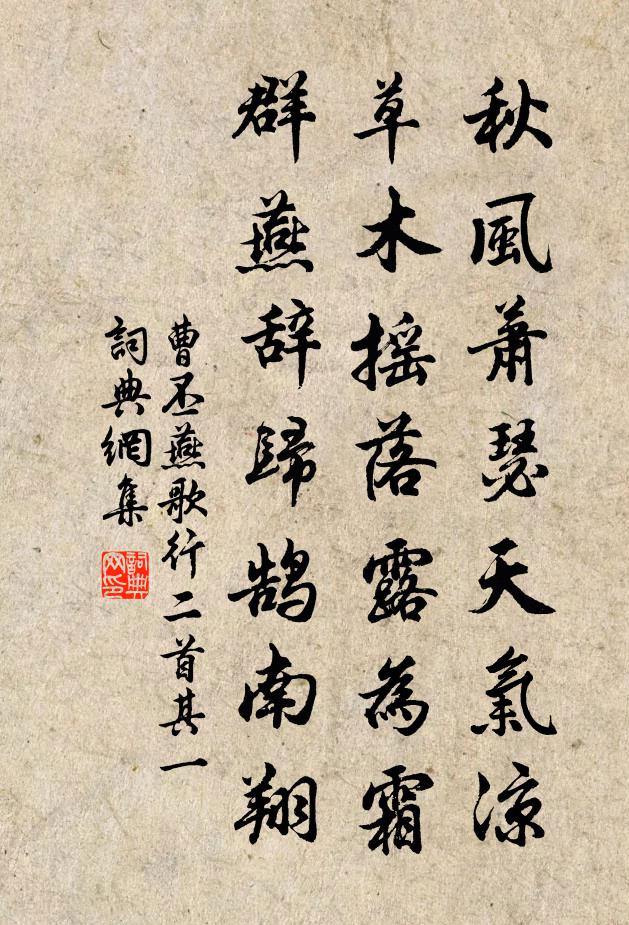 秋風蕭瑟天氣涼
草木搖落露為霜
群燕辞歸鹄南翔
曹丕燕歌行二首其一
詞典網集
詞典網印